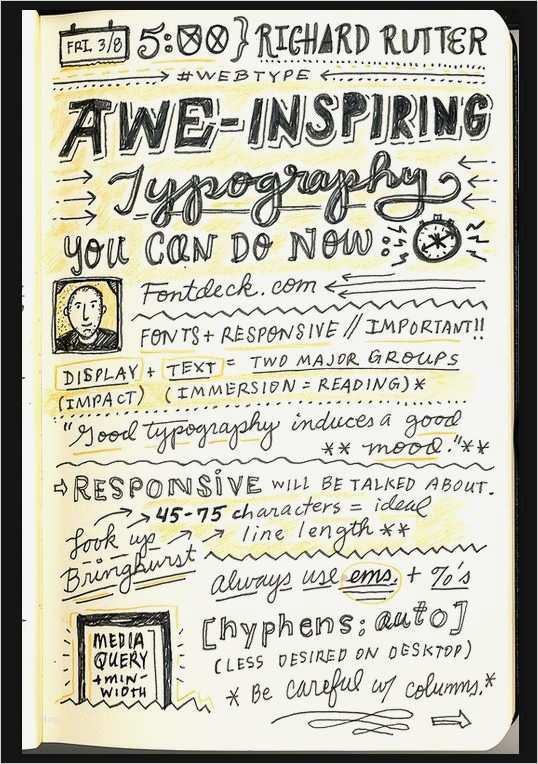 FRI. 3/8 5:00 } RICHARD RUTTER
#WEBTYPE
AWE-INSPIRING
Typography
YOU CAN DO NOW
Fontdeck.com
FONTS + RESPONSIVE // IMPORTANT!!
DISPLAY + TEXT = TWO MAJOR GROUPS
(IMPACT) (IMMERSION = READING)*
"Good typography induces a good
** mood."**
RESPONSIVE WILL BE TALKED ABOUT.
45-75 characters = ideal
line length **
Look up
Bringhurst
Always use ems. + %'s
[hyphens: auto]
(LESS DESIRED ON DESKTOP)
* Be careful w/ columns.*
MEDIA
QUERY
+MIN-
WIDTH